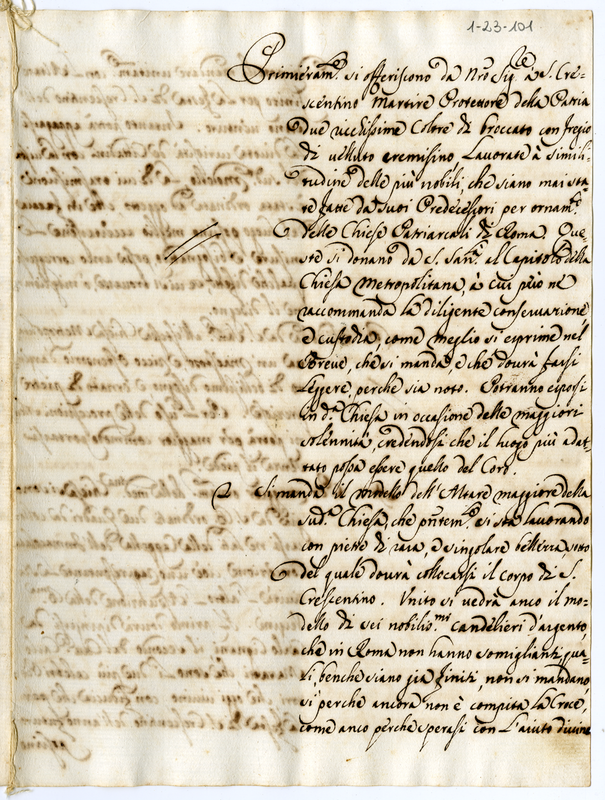 1-23-101
Primieram.te si offeriscono da Nro Sig.re à S. Cre-
scentino Martire Protettore della Patria
due ricchissime Coltre di broccato con fregio
di velluto cremisino, Lavorate à simili-
tudine delle più nobili, che siano mai sta-
te fatte da suoi Predecessori per ornam.to
delle Chiese Patriarcali di Roma. Que-
ste si donano da S. San.tà al Capitolo della
Chiesa Metropolitana, à cui però ne
raccommanda la diligente conservatione
e custodia, come meglio si esprime nel
Breve, che si manda, e che dovrà farsi
leggere, perche sia noto. Potranno esporsi
in d.a Chiesa in occasione delle maggiori
solennità, credendosi che il luogo più adat-
tato possa essere quello del Coro.
2 Si manda il modello dell'Altare maggiore della
sud.a Chiesa, che pñtem.te si sta lavorando
con pietre di rara, e singolare bellezza, sotto
del quale dovrà collocarsi il corpo di S.
Crescentino. Unito si vedrà anco il mo-
dello di sei nobiliss.mi candelieri d'argento,
che in Roma non hanno somiglianti, qua-
li, benche siano già finiti, non si mandano
si perche ancora non è compita la Croce,
come anco perche sperasi con l'aiuto divino